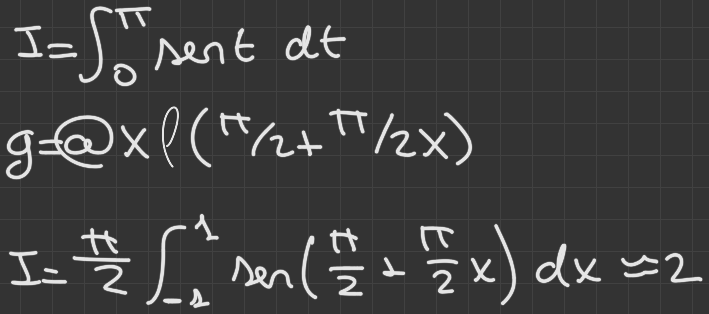 I=∫₀^π sent dt
g=@x f(π/2+π/2x)
I=π/2 ∫₋₁^1 sen(π/2+π/2 x) dx ≈2